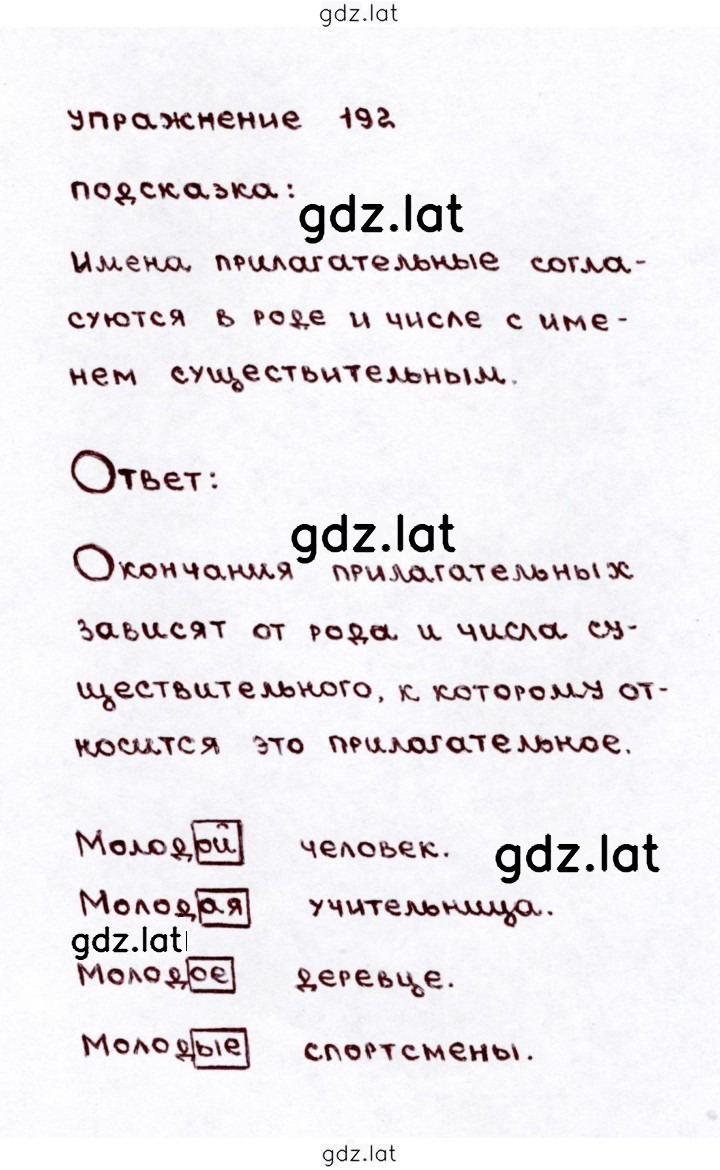 gdz.lat
упражнение 192
подсказка:
gdz.lat
Имена прилагательные согла-
суются в роде и числе с име-
нем существительным.
Ответ:
gdz.lat
Окончания прилагательных
зависят от рода и числа су-
ществительного, к которому от-
носится это прилагательное.
Молодой человек.
gdz.lat
Молодая учительница.
gdz.lat
Молодое деревце.
Молодые спортсмены.
gdz.lat